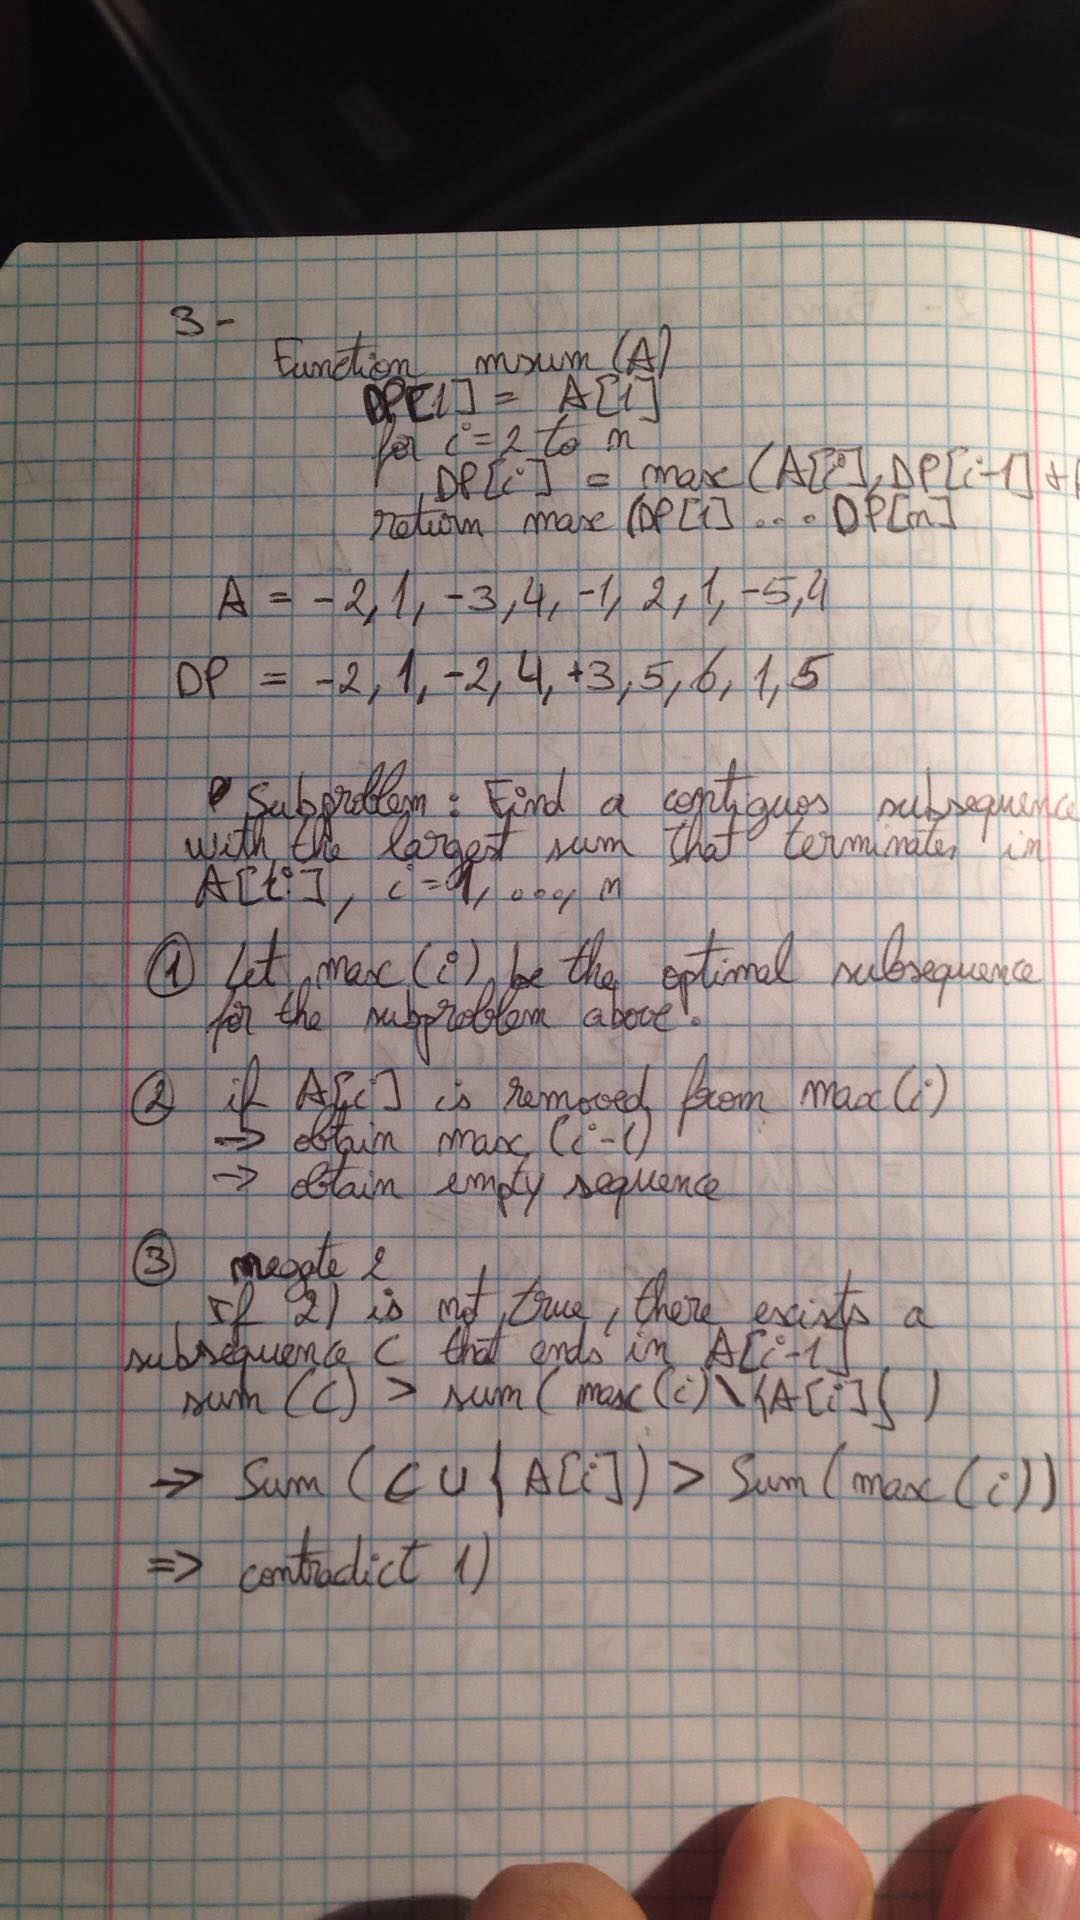 3-
Function msum (A)
DP[1] = A[1]
for i=2 to n
DP[i] = max (A[i], DP[i-1] +
return max (DP[1] .... DP[n]
A = -2, 1, -3, 4, -1, 2, 1, -5, 4
DP = -2, 1, -2, 4, +3, 5, 6, 1, 5
Subproblem : Find a contiguos subsequence
with the largest sum that terminates in
A[i], i = 1, ..., n
① Let max (i) be the optimal subsequence
for the subproblem above.
② if A[i] is removed from max (i)
→ obtain max (i-1)
→ obtain empty sequence
③ negate 2
If 2) is not true, there exists a
subsequence C that ends in A[i-1]
sum (C) > sum ( max (i) \ {A[i]} )
→ Sum (C ∪ { A[i]) > Sum (max (i))
=> contradict 1)